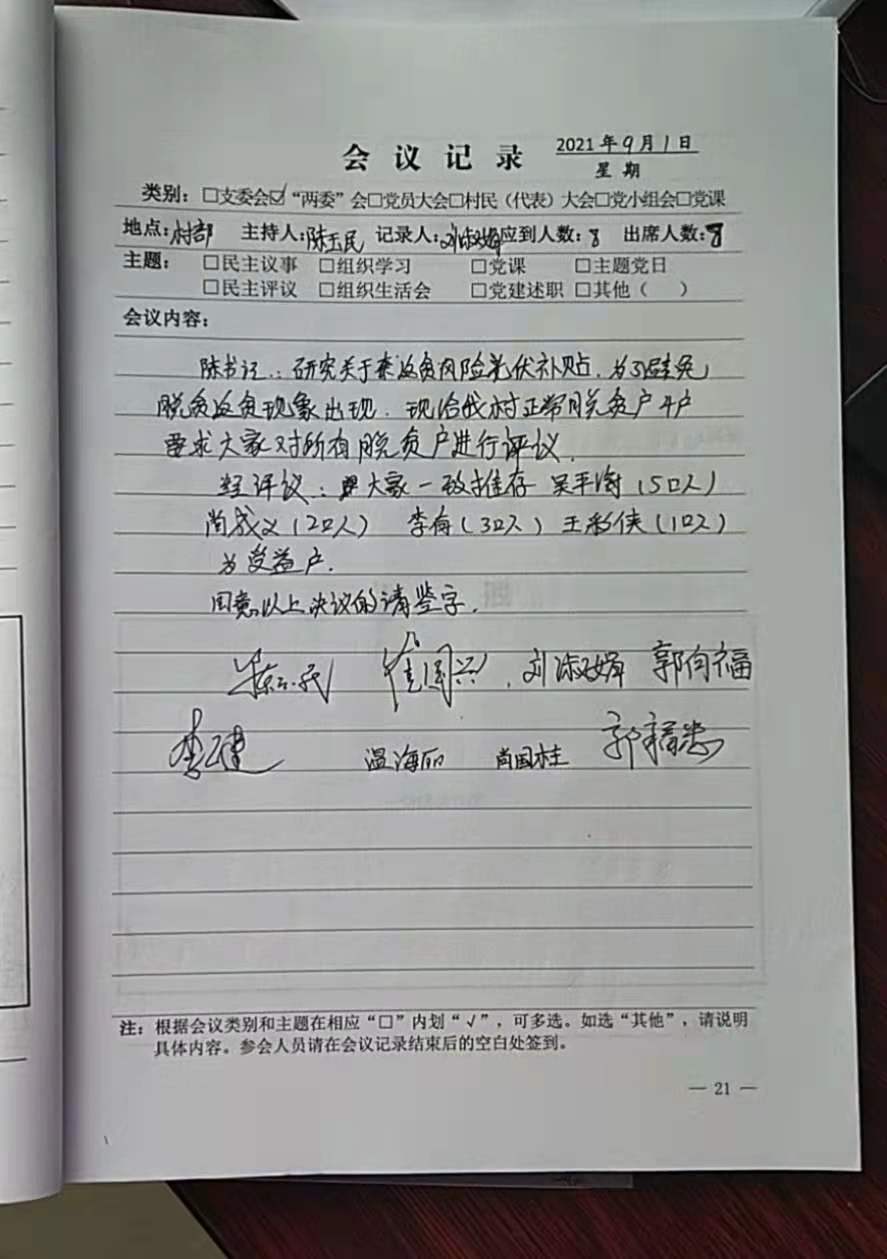 会议记录 2021年9月1日
星期
类别：□支委会☑“两委”会□党员大会□村民（代表）大会□党小组会□党课
地点：村部 主持人：陈玉民 记录人：刘淑娟 应到人数：8 出席人数：8
主题： □民主议事 □组织学习 □党课 □主题党日
□民主评议 □组织生活会 □党建述职 □其他（ ）
会议内容：
陈书记：研究关于 返贫风险光伏补贴，为了避免
脱贫返贫现象出现．现给我村正常脱贫户4户
要求大家对所有脱贫户进行评议．
经评议： 大家一致推荐 吴平 （5口人）
尚 义（2口人） 李 （3口人）王彩侠（1口人）
为受益户．
同意以上决议的请签字．
国兴 刘淑娟 郭向福
李 温海丽 尚国柱 郭
注：根据会议类别和主题在相应“□”内划“√”，可多选。如选“其他”，请说明
具体内容。参会人员请在会议记录结束后的空白处签到。
— 21 —